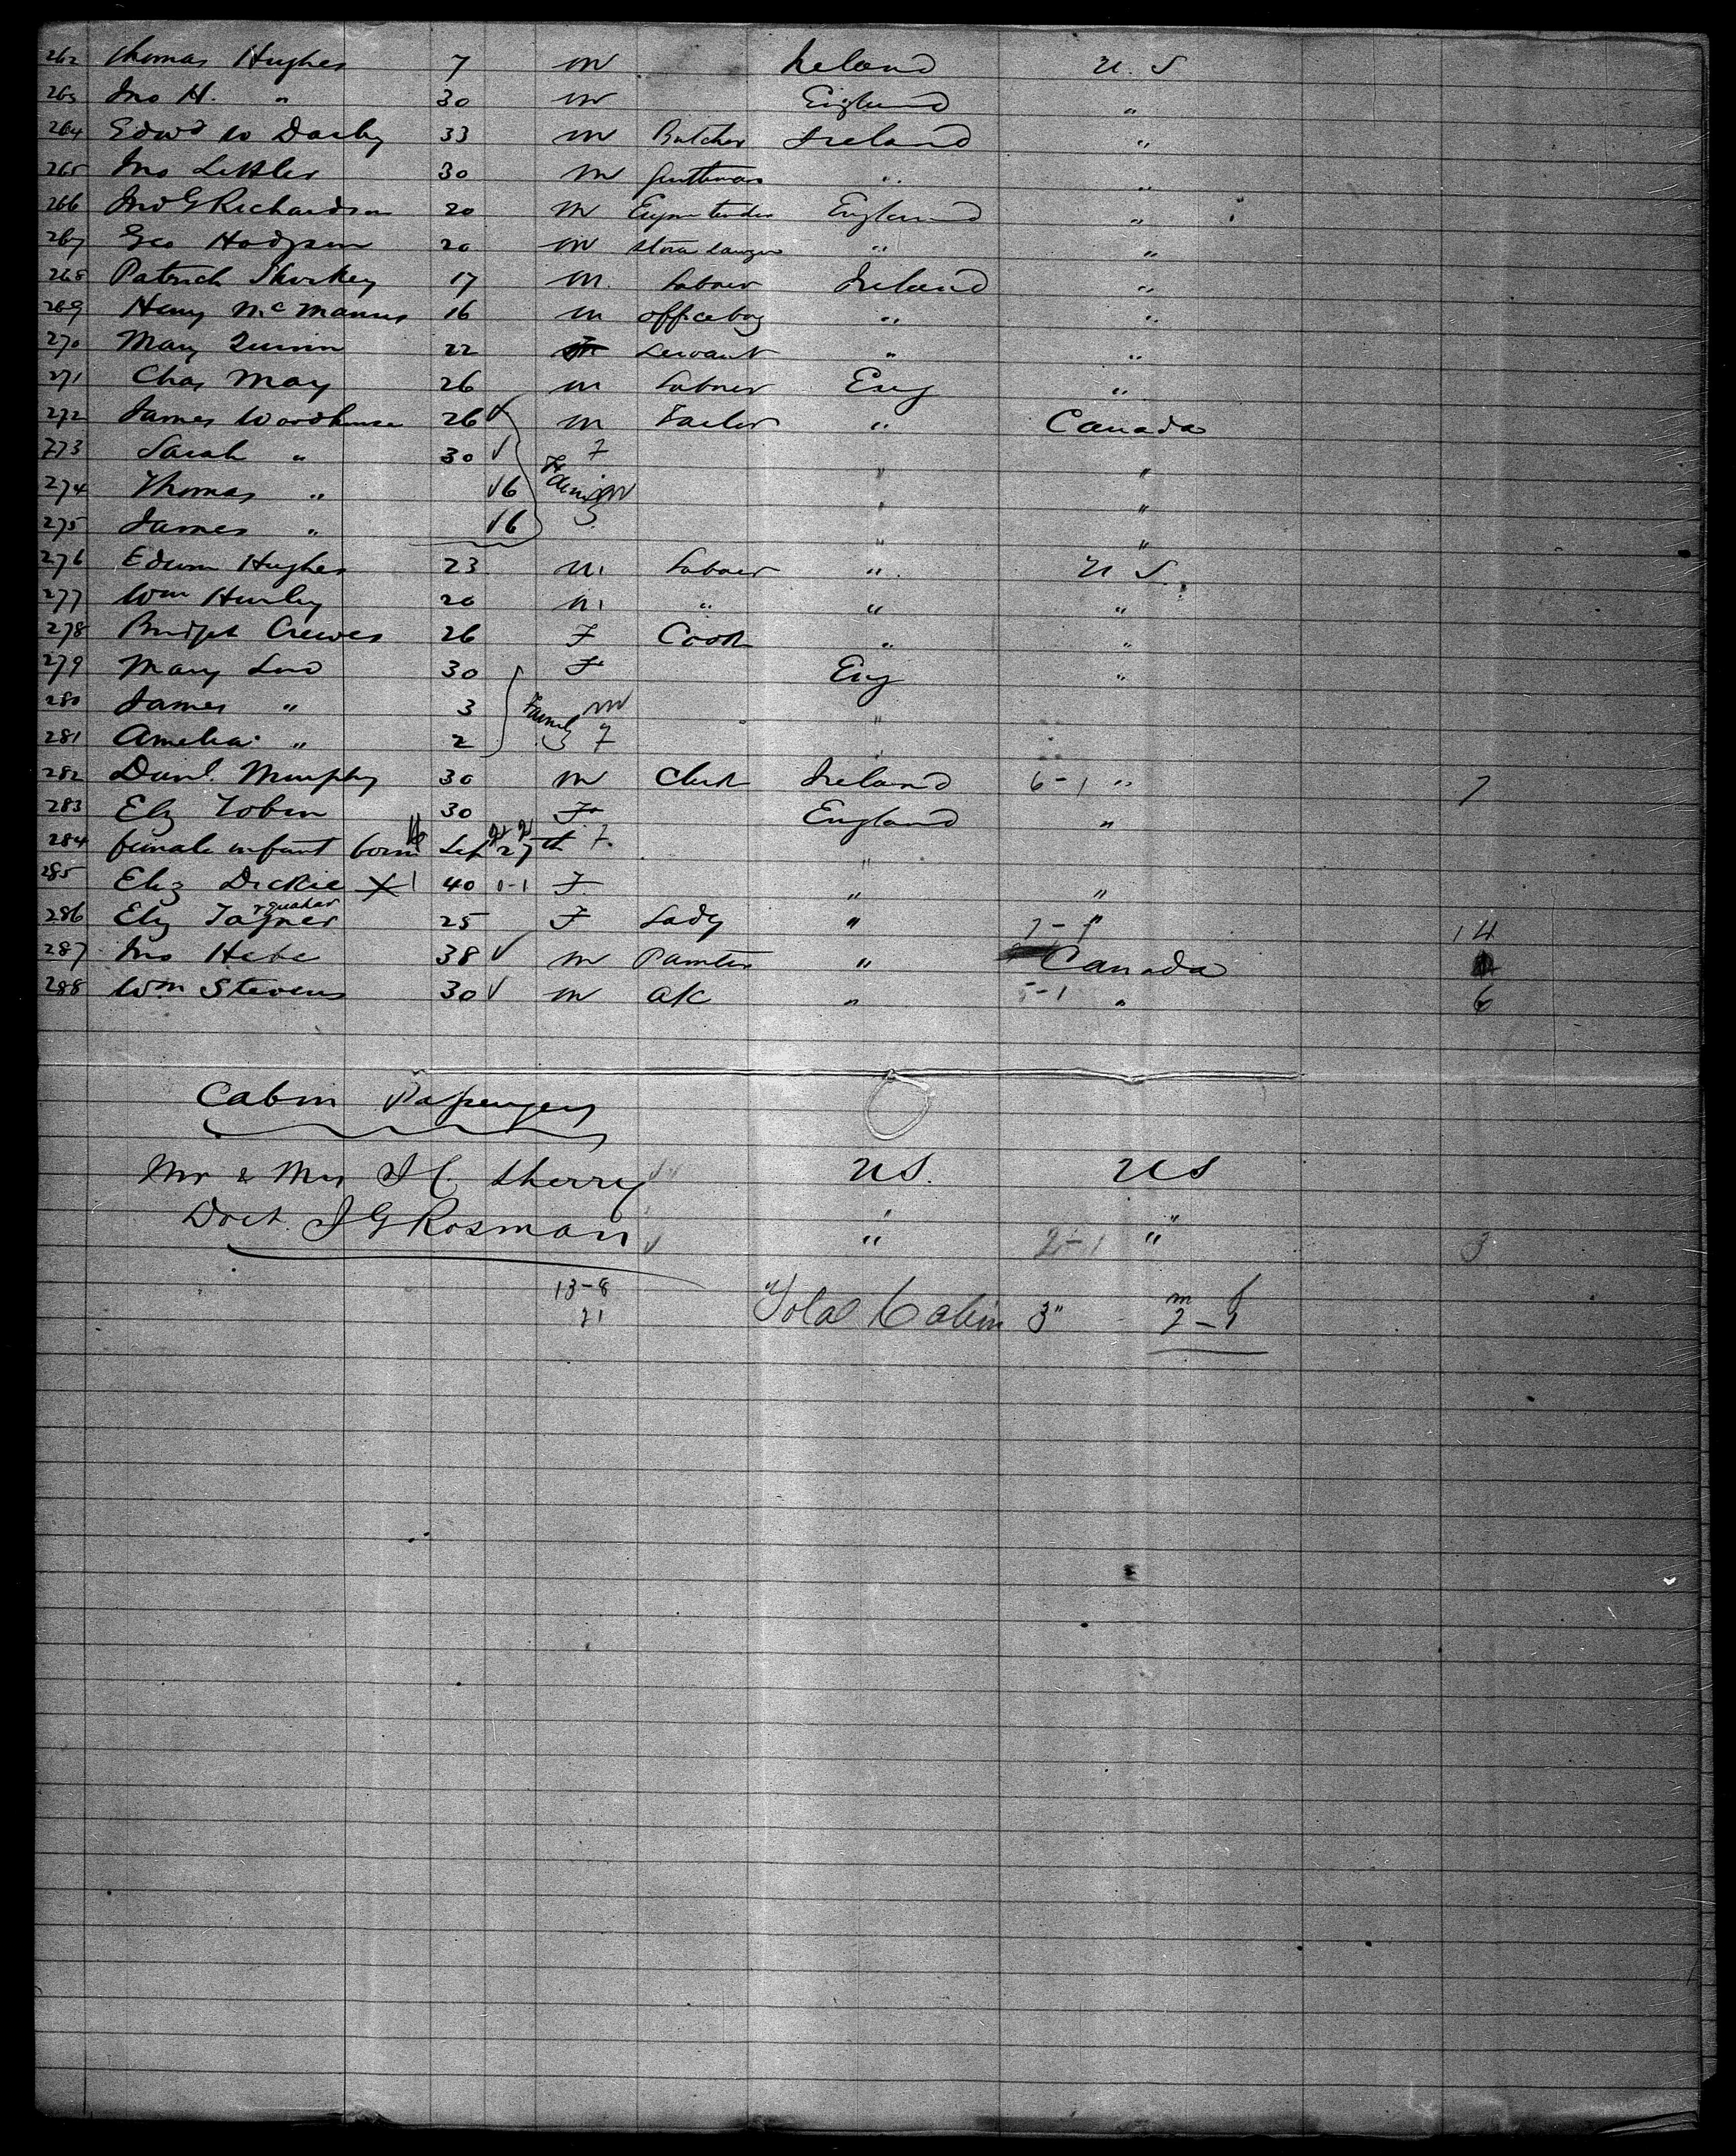 262 Thomas Hughes 7 m Ireland U. S
263 Jno H. " 30 m England "
264 Edwd W Darby 33 m Butcher Ireland "
265 Jno Lettler 30 m Gentleman " "
266 Jno G Richardson 20 m England "
267 Geo Hodgson 20 m " "
268 Patrick Sharkey 17 m. Labner Ireland "
269 Heny McManus 16 m office boy " "
270 Mary Quinn 22 Servant " "
271 Chas May 26 m Labner Eng "
272 James Woodhouse 26 ✓ m Tailor " Canada
273 Sarah " 30 ✓ F " "
274 Thomas " ✓6 Family m " "
275 James " ✓6 " "
276 Edwin Hughes 23 m Labner " U S.
277 Wm Hurley 20 m " " "
278 Bridget Crewes 26 F Cook " "
279 Mary 30 F Eng "
280 James " 3 Family m "
281 Amelia " 2 F
282 Danl. Murphy 30 m Clerk Ireland 6-1 " 7
283 Eliz Tobin 30 F England "
284 female infant born Sep 27th F. "
285 Eliz Dickie X 1 40 0-1 F " "
286 Eliz 25 F Lady " 7-7 14
287 Jno Hebe 38 ✓ m Painter " Canada
288 Wm Stevens 30 ✓ m " 5-1 " 6
Cabin Passengers
Mr & Mrs J C. Sherry US. US
Doct. J G Rosman " 2-1 " 3
13-8
21
Total Cabin 3" m f
2-1